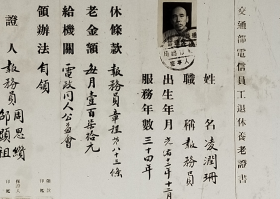 交通部電信員工退休養老證書
姓名凌潤珊
職稱報務員
出生年月光緒十二年十一月
服務年數三十四年
休條款報務員章程第八十三條
老金額每月壹百柒拾元
給機關電政同人公益會
領辦法自領
證人報務員
周思
邵頤祖